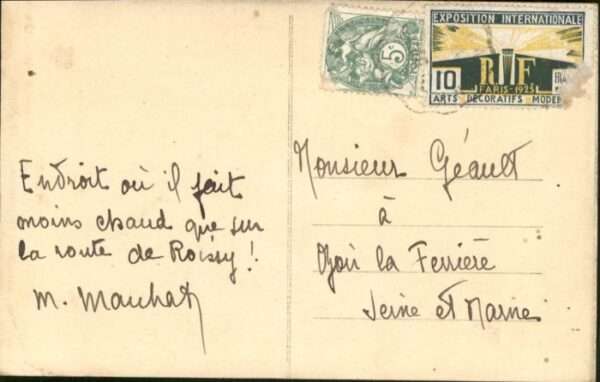 5c
EXPOSITION INTERNATIONALE
10
RF
PARIS-1925
ARTS DÉCORATIFS MODER
Endroit où il fait
moins chaud que sur
la route de Roissy !
M. Mauchat
Monsieur Géault
à
Ozoir la Ferrière
Seine et Marne